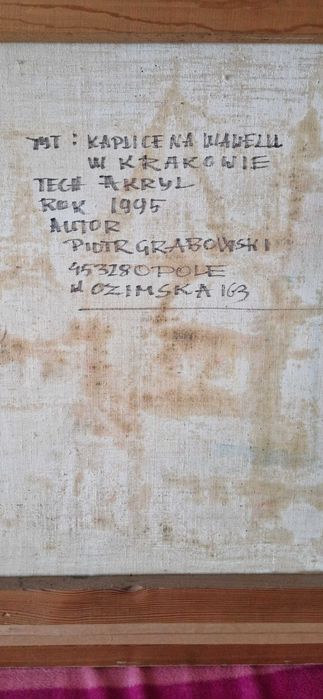 TYT : KAPLICE NA WAWELU
W KRAKOWIE
TECH AKRYL
ROK 1995
AUTOR
PIOTR GRABOWSKI
45328 OPOLE
OZIMSKA 163